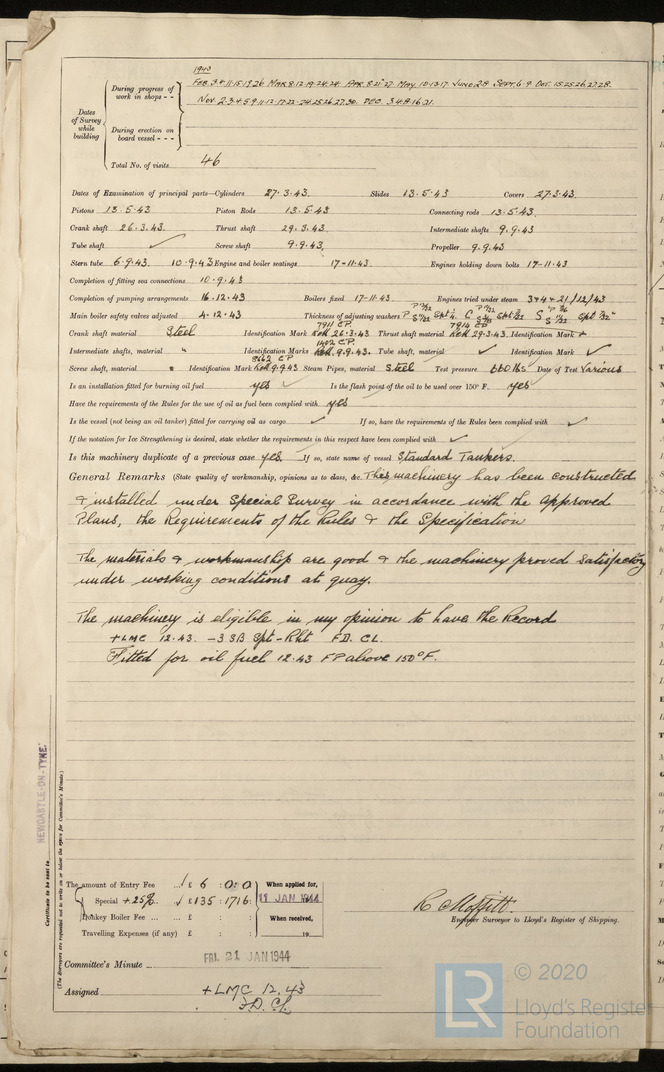 1943
During progress of work in shops - - FEB. 3.4.11.15.19.26 MAR 8.12.19.24.26 APR. 8.21.27. MAY. 10.13.17. JUNE 28 SEPT. 6.9. OCT. 15.25.26.27.28.
NOV 2.3.4.5.9.11.12.17.22.24.25.26.27.30. DEC. 3.4.8.16.21.
Dates of Survey while building
During erection on board vessel - - -
Total No. of visits 46
Dates of Examination of principal parts—Cylinders 27.3.43. Slides 13.5.43 Covers 27.3.43.
Pistons 13.5.43 Piston Rods 13.5.43 Connecting rods 13.5.43.
Crank shaft 26.3.43 Thrust shaft 29.3.43. Intermediate shafts 9.9.43
Tube shaft ✓ Screw shaft 9.9.43. Propeller 9.9.43
Stern tube 6.9.43. 10.9.43 Engine and boiler seatings 17-11-43. Engines holding down bolts 17-11-43
Completion of fitting sea connections 10.9.43
Completion of pumping arrangements 16.12.43 Boilers fixed 17-11-43. Engines tried under steam 3+4+21/12/43
Main boiler safety valves adjusted 4.12.43 Thickness of adjusting washers
7911 C.P. 7914 CP
Crank shaft material Steel Identification Mark 26.3.43 Thrust shaft material 29.3.43. Identification Mark
1492 C.P.
Intermediate shafts, material " Identification Marks 9.9.43. Tube shaft, material ✓ Identification Mark ✓
8662 CP
Screw shaft, material " Identification Mark 9.9.43 Steam Pipes, material Steel Test pressure 660 lbs Date of Test Various
Is an installation fitted for burning oil fuel yes ✓ Is the flash point of the oil to be used over 150° F. yes
Have the requirements of the Rules for the use of oil as fuel been complied with yes
Is the vessel (not being an oil tanker) fitted for carrying oil as cargo ✓ If so, have the requirements of the Rules been complied with ✓
If the notation for Ice Strengthening is desired, state whether the requirements in this respect have been complied with ✓
Is this machinery duplicate of a previous case yes. If so, state name of vessel Standard Tankers.
General Remarks (State quality of workmanship, opinions as to class, &c. This machinery has been constructed
& installed under Special Survey in accordance with the approved
Plans, the Requirements of the Rules & the Specification
The materials & workmanship are good & the machinery proved satisfactory
under working conditions at quay.
The machinery is eligible in my opinion to have the Record
+LMC 12.43. -3 SB Spt-Rht FD. CL.
Fitted for oil fuel 12.43 FP above 150°F.
NEWCASTLE-ON-TYNE.
Certificate to be sent to
(The Surveyors are requested not to write on or below the space for Committee's Minute.)
The amount of Entry Fee ... £ 6 : 0 : 0 When applied for,
Special +25% £135 : 17 : 6 : 11 JAN 1944
Donkey Boiler Fee ... £ : : When received,
Travelling Expenses (if any) £ : : 19
R. Moffitt.
Engineer Surveyor to Lloyd's Register of Shipping.
Committee's Minute FRI. 21 JAN 1944
Assigned +LMC 12.43
F.D. CL
LR © 2020
Lloyd's Register
Foundation